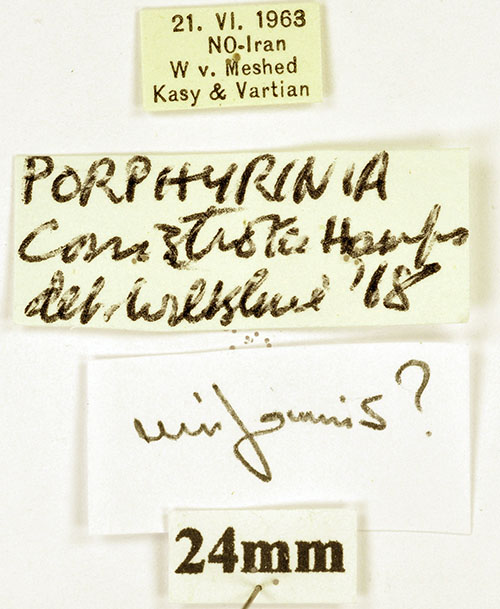 21. VI. 1963
NO-Iran
W v. Meshed
Kasy & Vartian
PORPHYRINIA
Hamps
det. Wiltshire '68
?
24mm